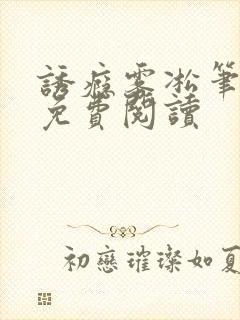 誘癮雾凇筆
免費閱讀
初戀璀璨如夏